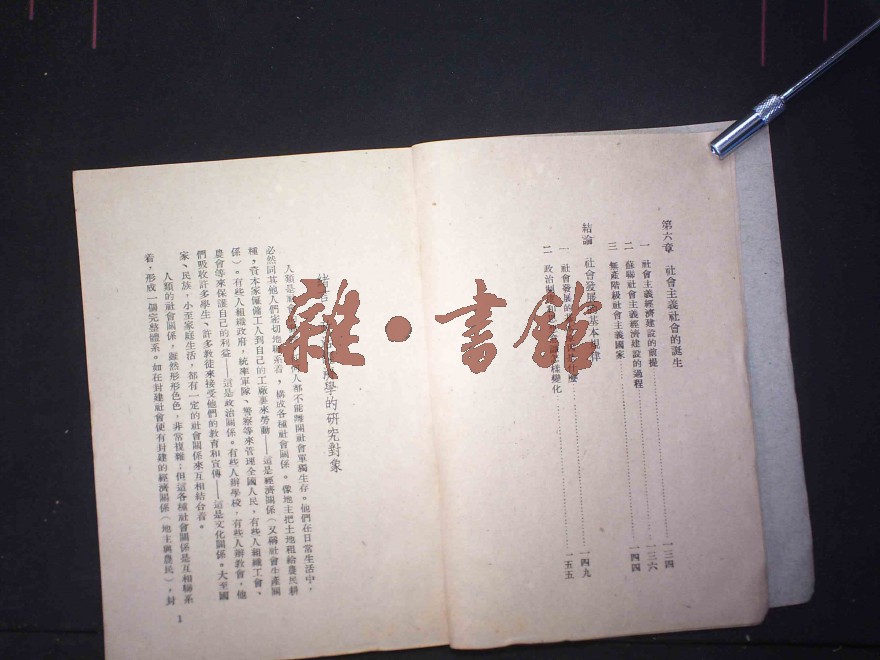 第六章 社會主義社會的誕生
一 社會主義經濟建設的前提……一三四
二 蘇聯社會主義經濟建設的過程……一三六
三 無產階級社會主義國家……一四四
結論 社會發展的基本規律
一 社會發展的……一四九
二 政治……變化……一五五
緒言 學的研究對象
人類是社會 人都不能離開社會單獨生存。他們在日常生活中,
必然同其他人們密切地聯系着,構成各種社會關係。像地主把土地租給農民耕
種,資本家僱傭工人到自己的工廠裏來勞動——這是經濟關係(又稱社會生產關
係)。有些人組織政府,統率軍隊、警察等來管理全國人民,有些人組織工會、
農會等來保護自己的利益——這是政治關係。有些人辦學校,有些人辦教會,他
們吸收許多學生、許多教徒來接受他們的教育和宣傳——這是文化關係。大至國
家、民族,小至家庭生活,都有一定的社會關係來互相結合着。
人類的社會關係,雖然形形色色,非常複雜;但這各種社會關係是互相聯系
着,形成一個完整體系。如在封建社會便有封建的經濟關係(地主與農民),封
1
雜·書館